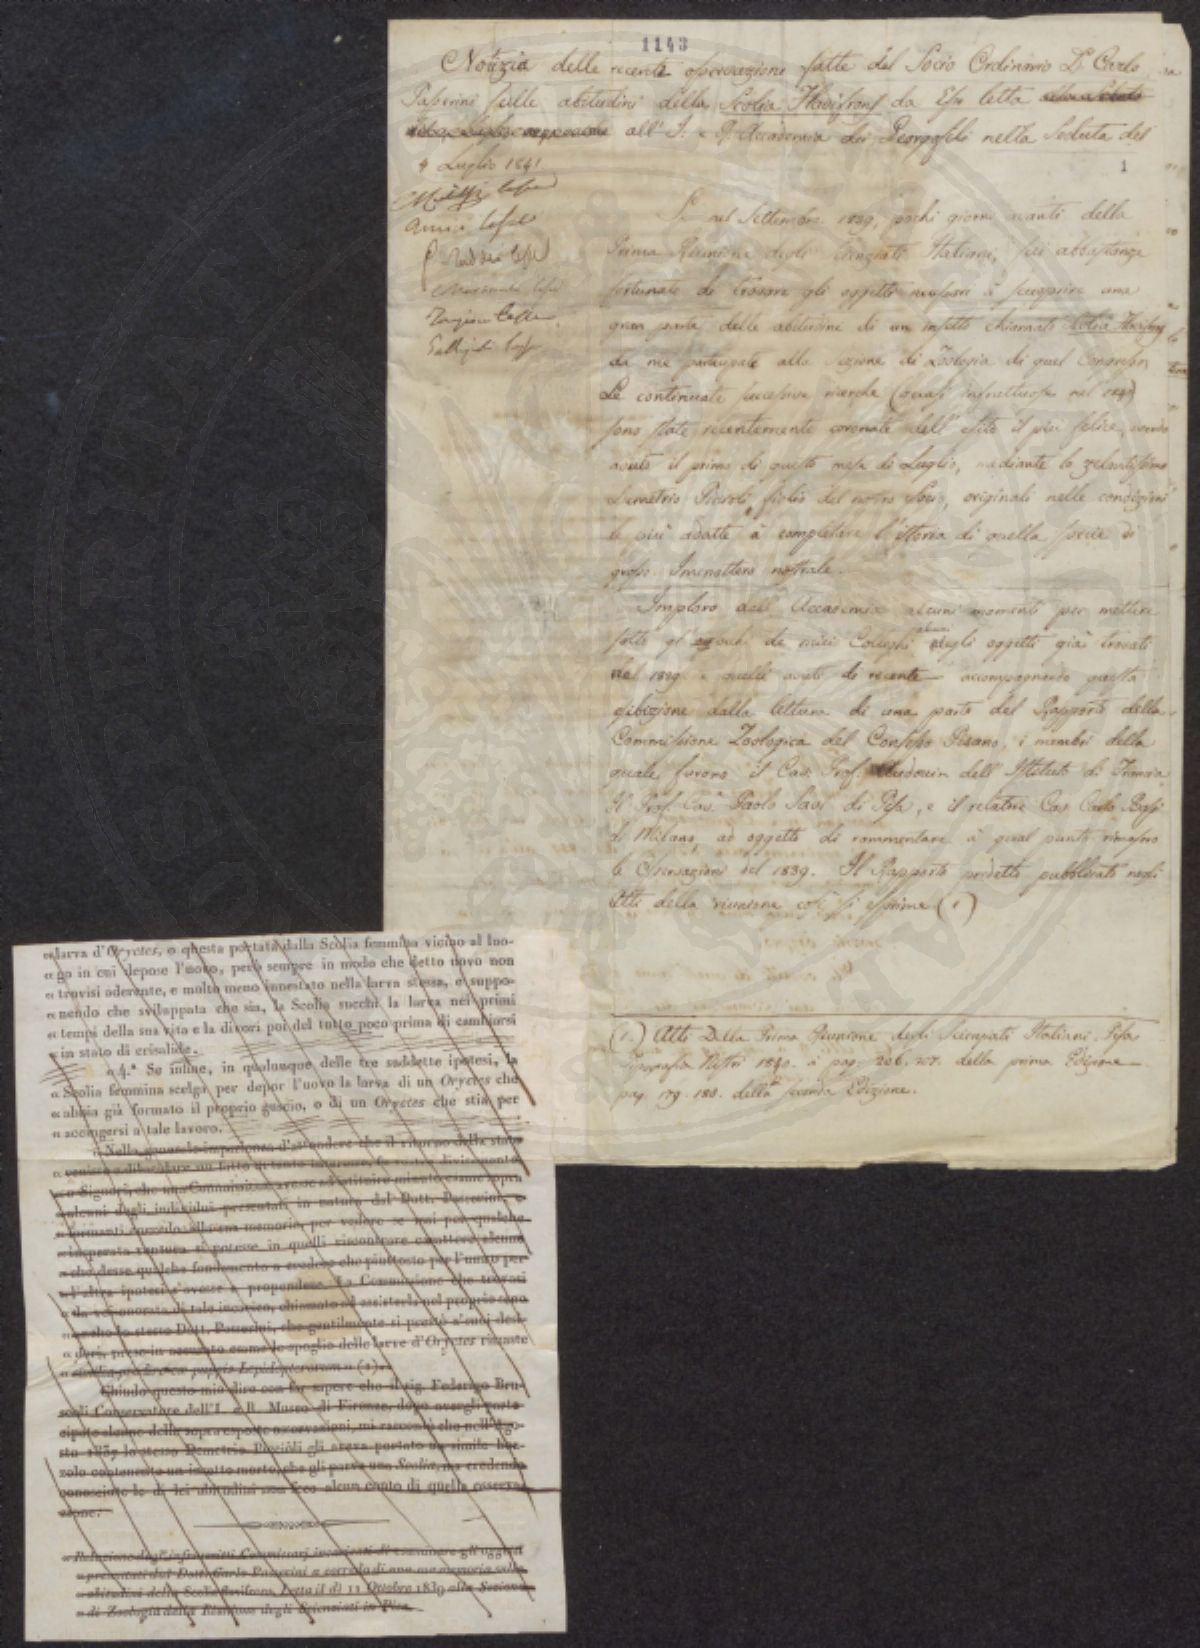 1143
Notizia delle recenti osservazioni fatte dal Socio Ordinario Dr. Carlo
Passerini sulle abitudini della Scolia Flavifrons da Esso letta
all' I. e R. Accademia dei Georgofili nella Seduta del
4 Luglio 1841
1
Se nel Settembre 1839, pochi giorni avanti della
Prima Riunione degli Scienziati Italiani, fui abbastanza
fortunato di trovare gli oggetti necessari a scuoprire una
gran parte delle abitudini di un insetto chiamato Scolia Flavifrons
da me partecipate alla Sezione di Zoologia di quel Congresso,
Le continuate successive ricerche (quasi infruttuose nel 1840)
sono state recentemente coronate dell' esito il più felice, avendo
avuto il primo di questo mese di Luglio, mediante lo zelantissimo
Demetrio Piccioli figlio del nostro Socio, originali nelle condizioni
le più adatte a completare l'istoria di quella specie di
grosso Imenottero nostrale.
Imploro dall' Accademia alcuni momenti per mettere
sotto gl' occhi de miei Colleghi alcuni degli oggetti già trovati
nel 1839 e quelli avuti di recente accompagnando questa
esibizione dalla lettura di una parte del Rapporto della
Commissione Zoologica del Consesso Pisano, i membri della
quale furono il Cav. Prof. Audouin dell' Istituto di Francia
Il Prof. Cav. Paolo Savi di Pisa, e il relatore Cav. Carlo Bassi
di Milano, ad oggetto di rammentare a qual punto rimasero
le Osservazioni del 1839. Il Rapporto predetto pubblicato negli
Atti della riunione così si esprime (1)
(1.) Atti Della Prima Riunione degli Scienziati Italiani. Pisa
Tipografia Nistri 1840. a pag. 206. 207. della prima Edizione
pag. 179. 180. della seconda Edizione.
« larva d'Oryctes, o questa portata dalla Scolia femmina vicino al luo-
« go in cui depose l'uovo, però sempre in modo che detto uovo non
« trovisi aderente, e molto meno innestato nella larva stessa, e suppo-
« nendo che sviluppata che sia, la Scolia succhi la larva nei primi
« tempi della sua vita e la divori poi del tutto poco prima di cambiarsi
« in stato di crisalide.
« 4.ª Se infine, in qualunque delle tre suddette ipotesi, la
« Scolia femmina scelga per depor l'uovo la larva di un Oryctes che
« abbia già formato il proprio guscio, o di un Oryctes che stia per
« accingersi a tale lavoro.
« Nella generale impazienza d'attendere che il ritorno della state
« venisse a dilucidare un fatto di tanto interesse, fu vostro divisamento,
« o Signori, che una Commissione avesse ad istituire minuto esame sopra
« alcuni degli individui presentati in natura dal Dott. Passerini, e
« formanti corredo alla sua memoria, per vedere se mai per qualche
« insperata ventura si potesse in quelli riscontrare carattere alcuno
« che desse qualche fondamento a credere che piuttosto per l'una per
« l'altra ipotesi s'avesse a propendere. La Commissione che trovasi
« da voi onorata di tale incarico, chiamato ad assisterla nel proprio seno
« anche lo stesso Dott. Passerini, che gentilmente si prestò a' suoi desi-
« derj, prese in accurato esame le spoglie delle larve d'Oryctes rimaste
(2).
Chiudo questo mio dire con far sapere che il sig. Federigo Bru-
scoli Conservatore dell'I. e R. Museo di Firenze, dopo avergli parte-
cipato alcune delle sopra esposte osservazioni, mi raccontò che nell'Ago-
sto 1837 lo stesso Demetrio Piccioli gli aveva portato un simile boz-
zolo contenente un insetto morto, che gli parve una Scolia, ma credendo
conosciute le di lei abitudini non fece alcun conto di quella osserva-
zione.
« Relazione degl'infrascritti Commissarj incaricati di esaminare gli oggetti
« presentati dal Dott. Carlo Passerini a corredo di una sua memoria sulle
« abitudini della Scolia flavifrons, Letta il dì 11 Ottobre 1839 alla Sezione
« di Zoologia della Riunione degli Scienziati in Pisa.